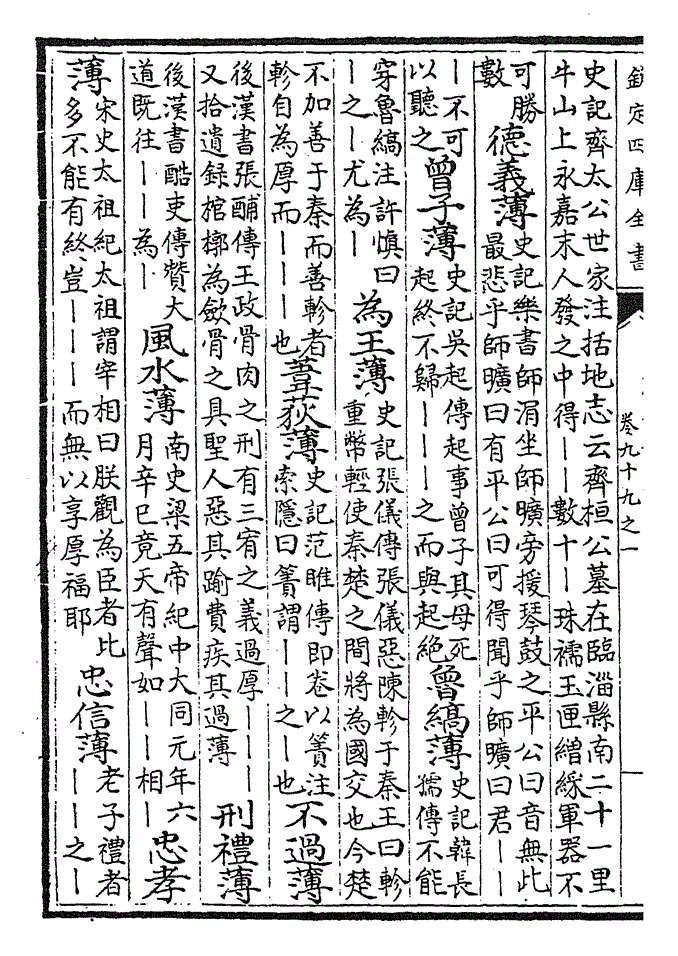 欽定四庫全書
卷九十九之一
一
史記齊太公世家注括地志云齊桓公墓在臨淄縣南二十一里
牛山上永嘉末人發之中得｜｜數十｜珠襦玉匣繒綵軍器不
可勝
數
德義薄
史記樂書師涓坐師曠旁援琴鼓之平公曰音無此
最悲乎師曠曰有平公曰可得聞乎師曠曰君｜｜
｜不可
以聽之
曾子薄
史記吳起傳起事曾子其母死
起終不歸｜｜｜之而與起絶
魯縞薄
史記韓長
孺傳不能
穿魯縞注許慎曰
｜之｜尤為｜
為王薄
史記張儀傳張儀惡陳軫于秦王曰軫
重幣輕使秦楚之間將為國交也今楚
不加善于秦而善軫者
軫自為厚而｜｜｜也
葦荻薄
史記范睢傳即卷以簀注
索隱曰簀謂｜｜之｜也
不過薄
後漢書張酺傳王政骨肉之刑有三宥之義過厚｜｜｜
又拾遺錄棺槨為歛骨之具聖人惡其踰費疾其過薄
刑禮薄
後漢書酷吏傳贊大
道既往｜｜為｜
風水薄
南史梁五帝紀中大同元年六
月辛巳竟天有聲如｜｜相｜
忠孝
薄
宋史太祖紀太祖謂宰相曰朕觀為臣者比
多不能有終豈｜｜｜而無以享厚福耶
忠信薄
老子禮者
｜｜之｜